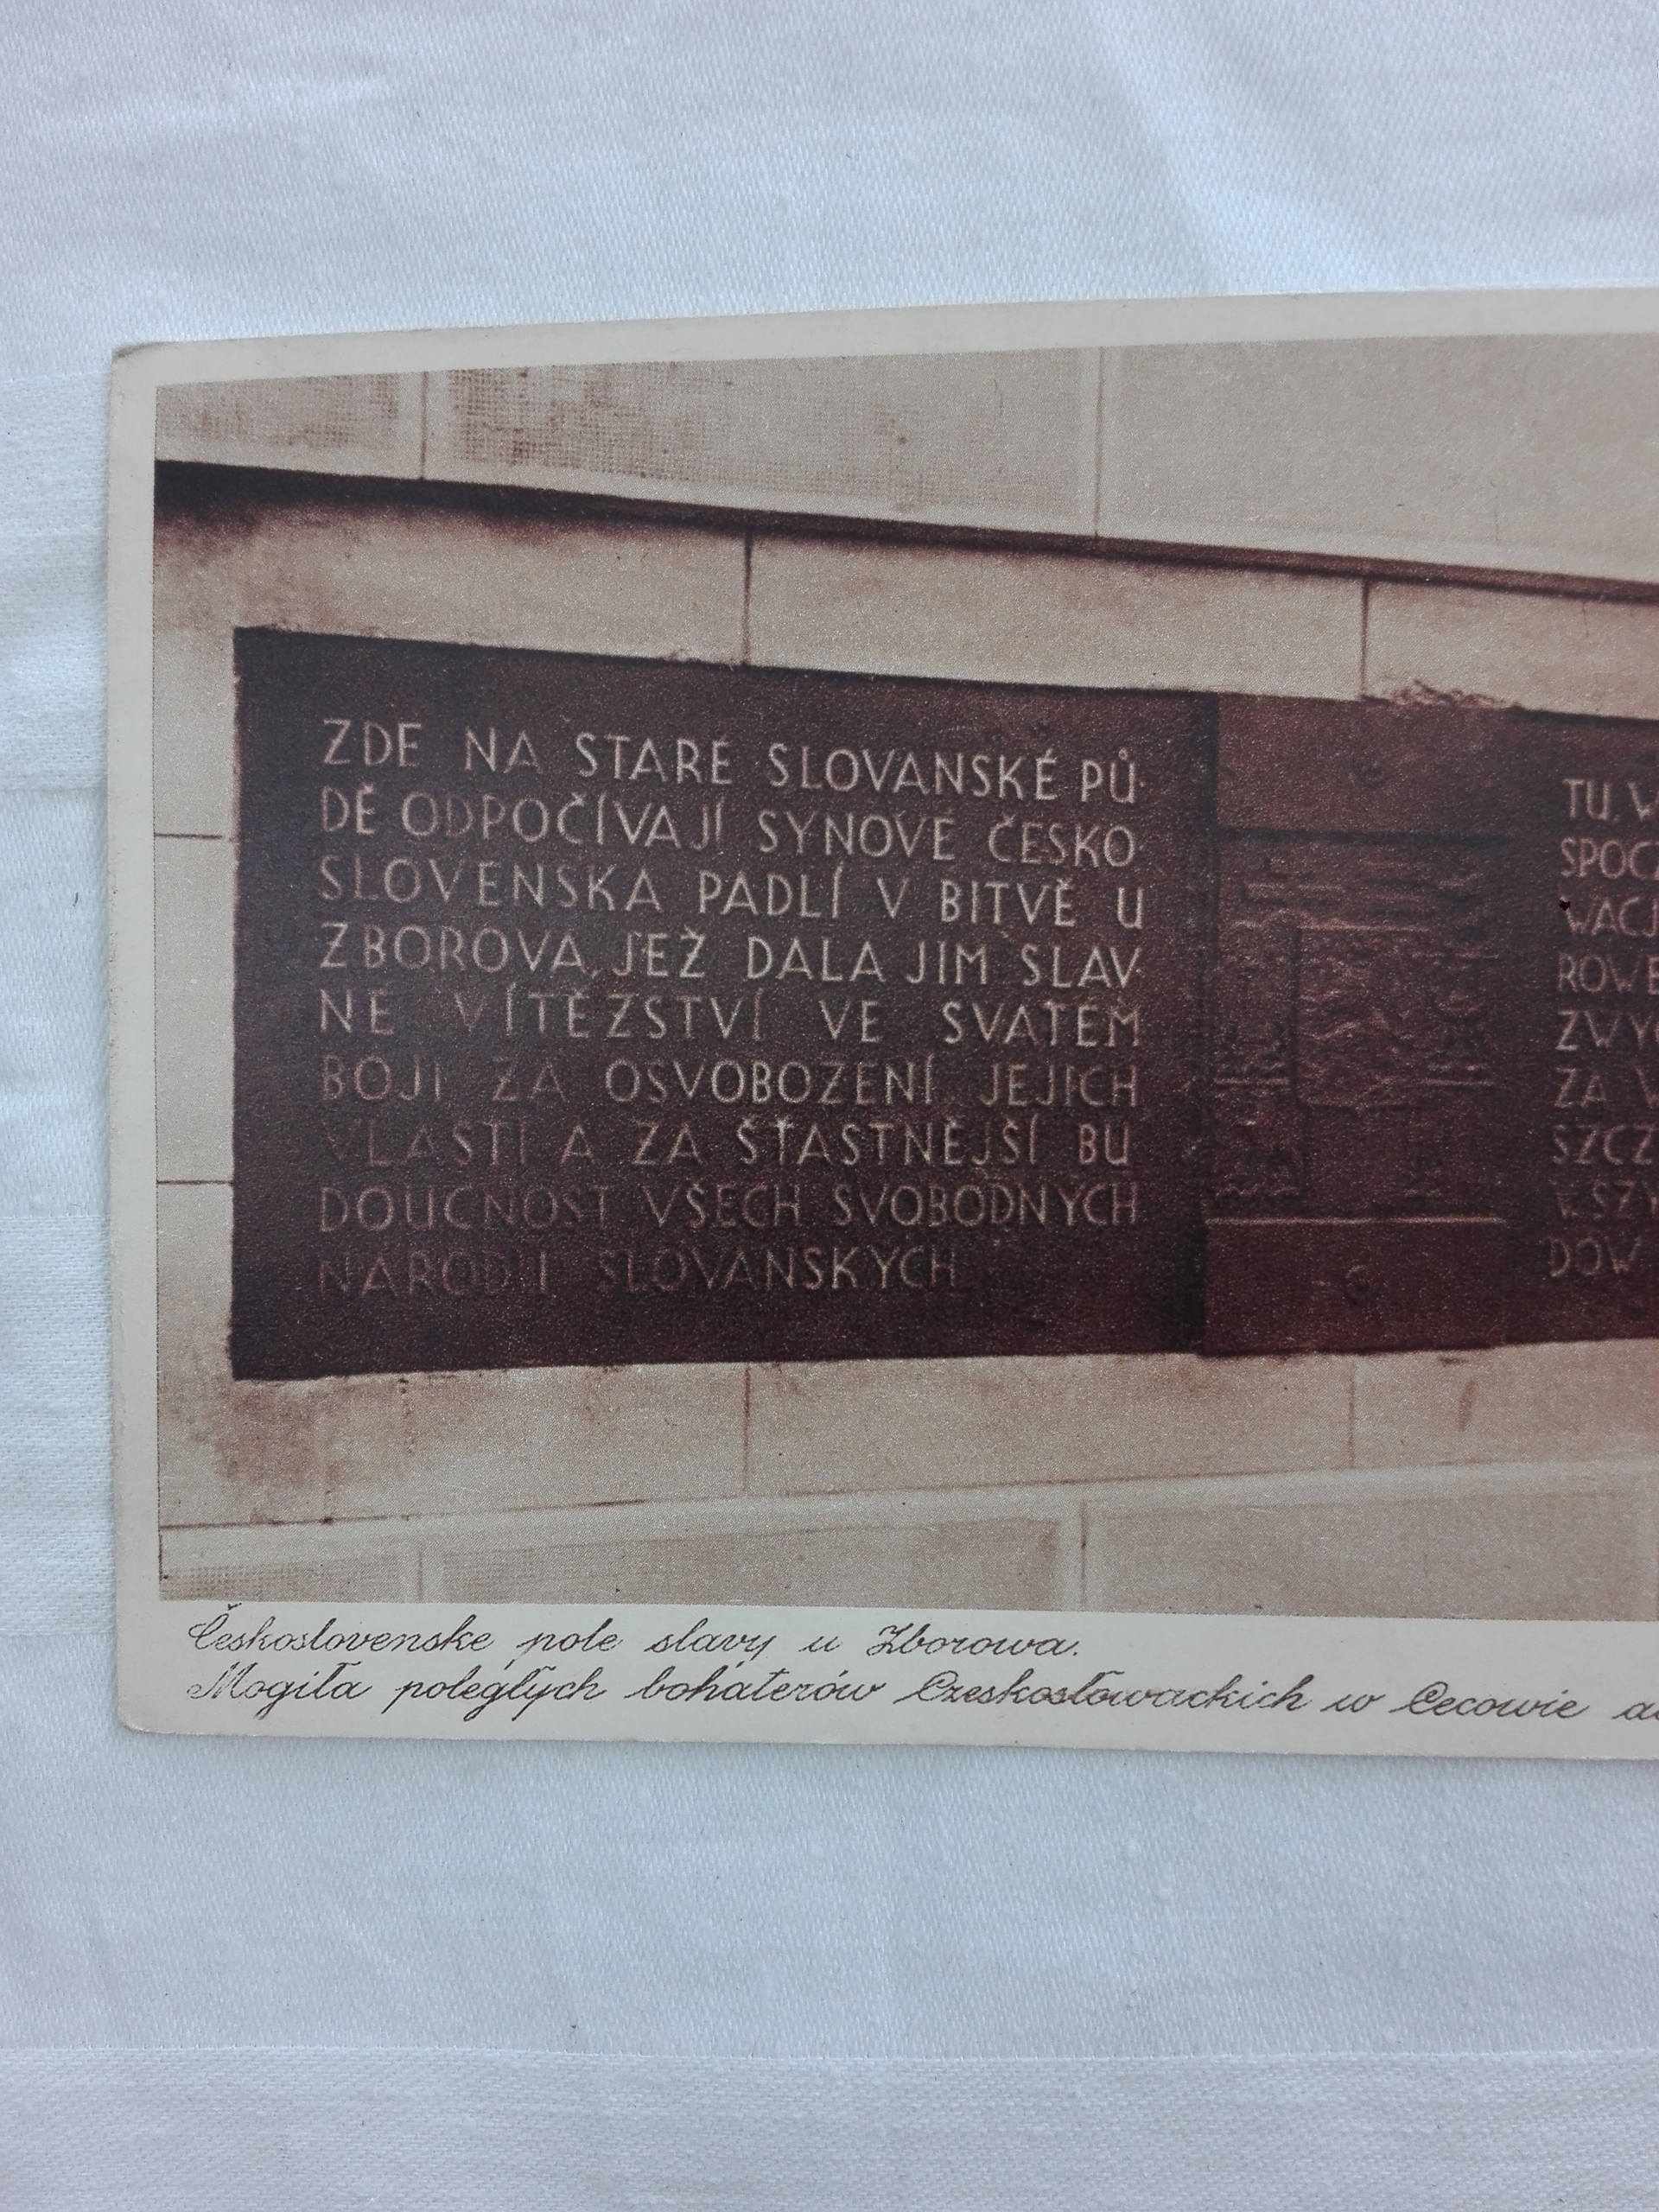 ZDE NA STARÉ SLOVANSKÉ PŮ-
DĚ ODPOČÍVAJÍ SYNOVÉ ČESKO
SLOVENSKA PADLÍ V BITVĚ U
ZBOROVA, JEŽ DALA JIM SLAV-
NÉ VÍTĚZSTVÍ VE SVATÉM
BOJI ZA OSVOBOZENÍ JEJICH
VLASTI A ZA ŠŤASTNĚJŠÍ BU
DOUCNOST VŠECH SVOBODNÝCH
NÁRODŮ SLOVANSKÝCH
TU, W
SPOCZ
WACJ
ROWE
ZWYC
ZA W
SZCZ
WSZY
DÓW
Československe pole slavy u Zborowa.
Mogiła poległych bohaterów Czeskosłowackich w Cecowie